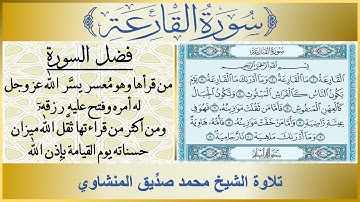 سُورَةُ القَارِعَة
فضل السورة
من قرأها وهو مُعسر يسَّر الله عز وجل
له أمره وفتح عليه رزقه
ومن أكثر من قراءتها ثقَّل الله ميزان
حسناته يوم القيامة بإذن الله
سورة القارعة
بسم الله الرحمن الرحيم
القارعة ما القارعة وما أدراك ما القارعة يوم
يكون الناس كالفراش المبثوث وتكون الجبال
كالعهن المنفوش فأما من ثقلت موازينه فهو في
عيشة راضية وأما من خفت موازينه فأمه هاوية
وما أدراك ماهيه نار حامية
تلاوة الشيخ محمد صدِّيق المنشاوي